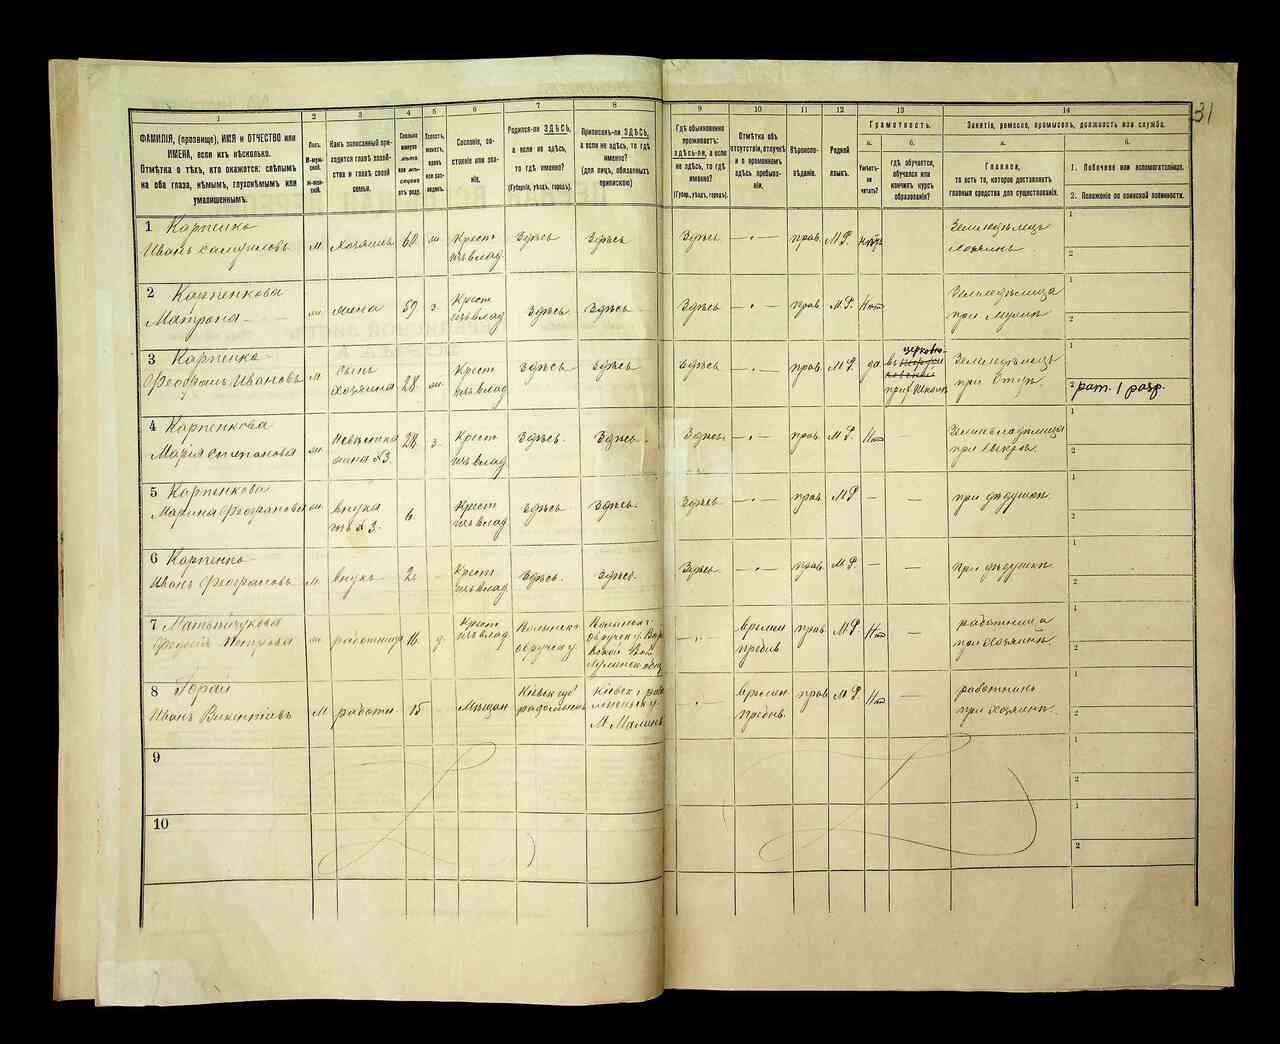 31
1 2 3 4 5 6 7 8 9 10 11 12 13 14
ФАМИЛІЯ, (прозвище), ИМЯ и ОТЧЕСТВО или
ИМЕНА, если ихъ нѣсколько.
Отмѣтка о тѣхъ, кто окажется: слѣпымъ
на оба глаза, нѣмымъ, глухонѣмымъ или
умалишеннымъ.
Полъ.
М-муж-
ской.
Ж-жен-
ской.
Какъ записанный при-
ходится главѣ хозяй-
ства и главѣ своей
семьи.
Сколько
минуло
лѣтъ
или мѣ-
сяцевъ
отъ роду.
Холостъ,
женатъ,
вдовъ
или раз-
веденъ.
Сословіе, со-
стояніе или зва-
ніе.
Родился-ли ЗДѢСЬ,
а если не здѣсь,
то гдѣ именно?
(Губернія, уѣздъ, городъ).
Приписанъ-ли ЗДѢСЬ,
а если не здѣсь, то гдѣ
именно?
(для лицъ, обязанныхъ
припискою)
Гдѣ обыкновенно
проживаетъ:
здѣсь-ли, а если
не здѣсь, то гдѣ
именно?
(Губер., уѣздъ, городъ).
Отмѣтка объ
отсутствіи, отлучкѣ
и о временномъ
здѣсь пребыва-
ніи.
Вѣроиспо-
вѣданіе.
Родной
языкъ.
Грамотность.
а. б.
Умѣетъ-
ли
читать?
гдѣ обучается,
обучался или
кончилъ курсъ
образованія?
Занятіе, ремесло, промыселъ, должность или служба.
а. б.
Главное,
то есть то, которое доставляетъ
главныя средства для существованія.
1. Побочное или вспомогательное.
2. Положеніе по воинской повинности.
1 Карпенко
Иванъ Самуиловъ м хозяинъ 60 ж. Крест изъ влад. Здѣсь Здѣсь Здѣсь — " — прав. М.Р. нѣтъ Земледѣлецъ хозяинъ 1 2
2 Карпенкова
Матрона ж жена 59 з. Крест изъ влад. Здѣсь Здѣсь Здѣсь — " — прав. М.Р. Нѣт Земледѣлица при мужѣ 1 2
3 Карпенко
Феофанъ Ивановъ м сынъ хозяина 28 ж. Крест изъ влад. Здѣсь Здѣсь Здѣсь прав. М.Р. да въ церковно- прих. школѣ Земледѣлецъ при отцѣ 1 2 рат. 1 разр.
4 Карпенкова
Марія Степанова ж невѣстка жена №3. 28 з. Крест изъ влад. Здѣсь. Здѣсь. Здѣсь — " — прав. М.Р. Нѣт — при свекрѣ 1 2
5 Карпенкова
Марина Феофанова ж. внука №3. 6 Крест изъ влад. Здѣсь Здѣсь. Здѣсь — " — прав. М.Р — — при дѣдушкѣ 1 2
6 Карпенко
Иванъ Феофановъ м внукъ 2 Крест изъ влад. Здѣсь. Здѣсь. Здѣсь — " — прав. М.Р. — — при дѣдушкѣ 1 2
7
Петрова ж. работница 16 Крест изъ влад. — " — времен пребыв. прав. М.Р. Нѣт — работница при хозяинѣ 1 2
8 Горай
Иванъ Викентіевъ м работн 15 Мѣщан Кіевск губ Кіевск г М. Малинъ — " — времен пребыв. прав. М.Р. Нѣт — работникъ при хозяинѣ. 1 2
9 1 2
10 1 2